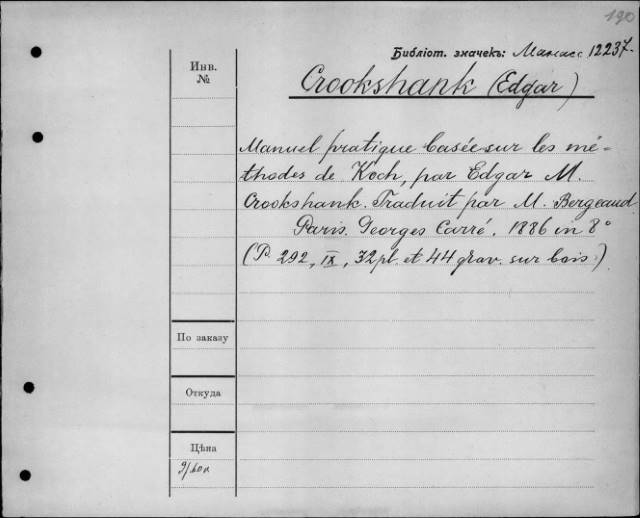 190
Библіот. значекъ: Манасс 12237.
Инв.
№
Crookshank (Edgar)
Manuel pratique basée sur les mé-
thodes de Koch, par Edgar M.
Crookshank. Traduit par M. Bergeaud
Paris. Georges Carré. 1886 in 8°
(P. 292, IX, 32 pl. et 44 grav. sur bois.)
По заказу
Откуда
Цѣна